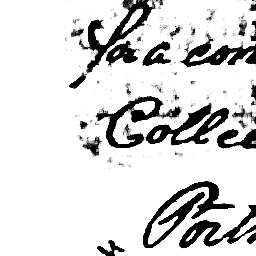 for a com
Collec
Port